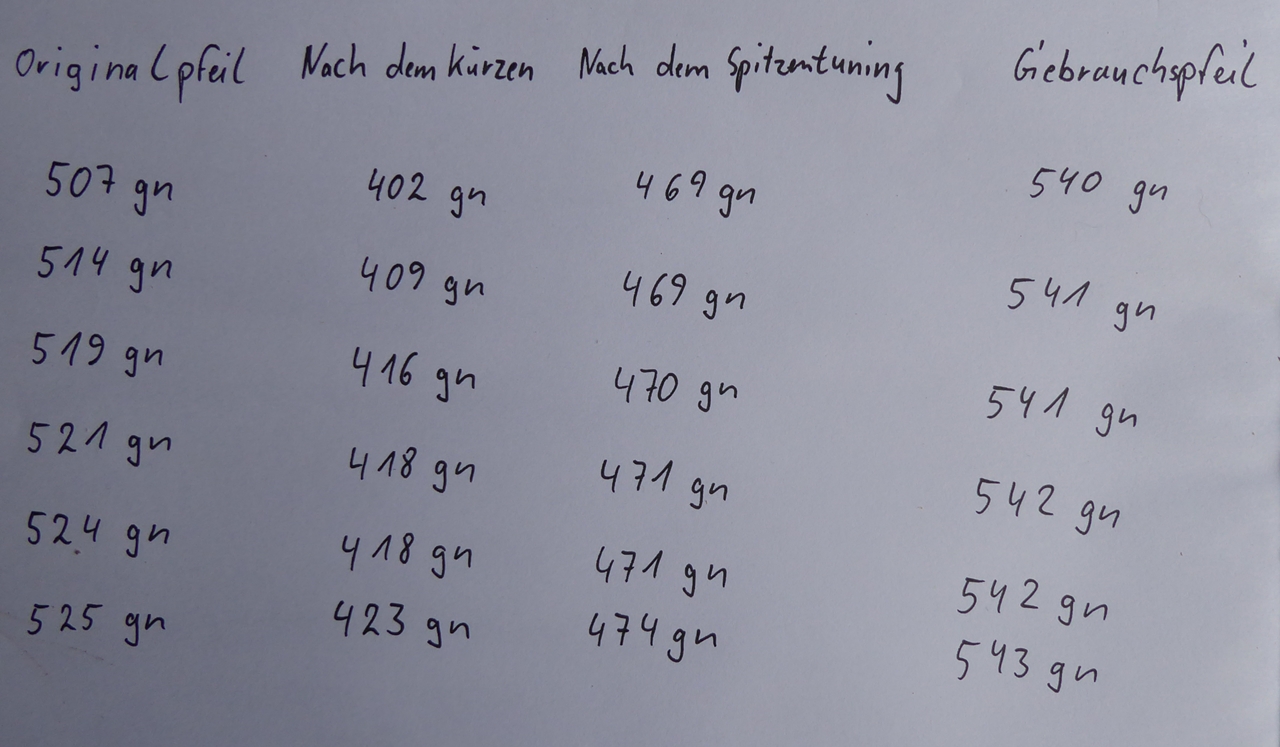 Originalpfeil Nach dem kürzen Nach dem Spitzentuning Gebrauchspfeil
507 gn 402 gn 469 gn 540 gn
514 gn 409 gn 469 gn 541 gn
519 gn 416 gn 470 gn 541 gn
521 gn 418 gn 471 gn 542 gn
524 gn 418 gn 471 gn 542 gn
525 gn 423 gn 474 gn 543 gn